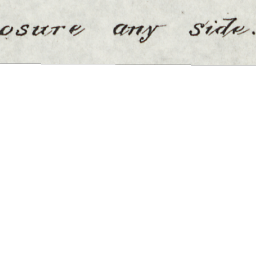 osure any side.